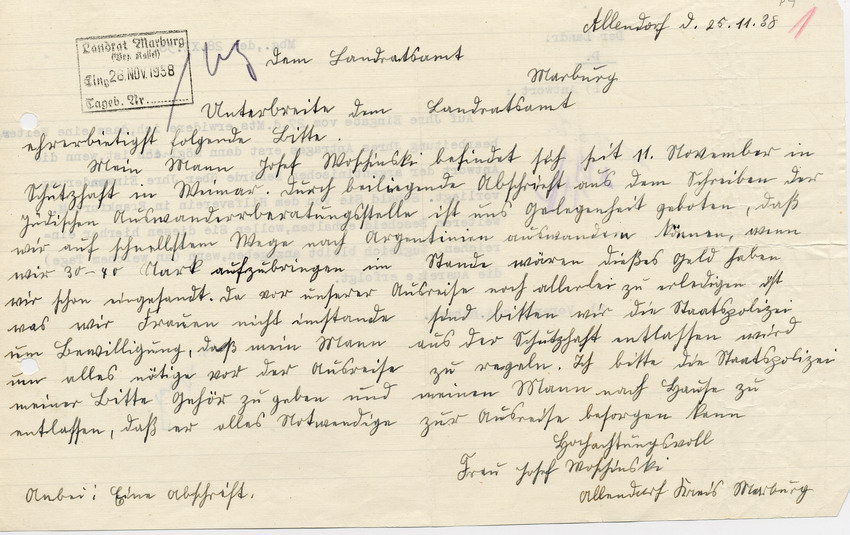 Allendorf d. 25.11.38
1
Landrat Marburg
(Bez. Kassel)
Eing. 26. NOV. 1938
Tageb. Nr.
Dem Landratsamt
Marburg
Unterbreite dem Landratsamt
ehrerbietigst folgende Bitte.
Mein Mann Josef Woschinski befindet sich seit 11. November in
Schutzhaft in Weimar. Durch beiliegende Abschrift aus dem Schreiben der
Jüdischen Auswandererberatungsstelle ist uns Gelegenheit geboten, daß
wir auf schnellstem Wege nach Argentinien auswandern können, wenn
wir 30-40 Mark aufzubringen im Stande wären dießes Geld haben
wir schon eingesandt. Da vor unserer Ausreise noch allerlei zu erledigen ist
was wir Frauen nicht imstande sind bitten wir die Staatspolizei
um Bewilligung, daß mein Mann aus der Schutzhaft entlassen wird
um alles nötige vor der Ausreise zu regeln. Ich bitte die Staatspolizei
meiner Bitte Gehör zu geben und meinen Mann nach Hause zu
entlassen, daß er alles Notwendige zur Ausreise besorgen kann
Hochachtungsvoll
Frau Josef Woschinski
Anbei: Eine Abschrift.
Allendorf Kreis Marburg